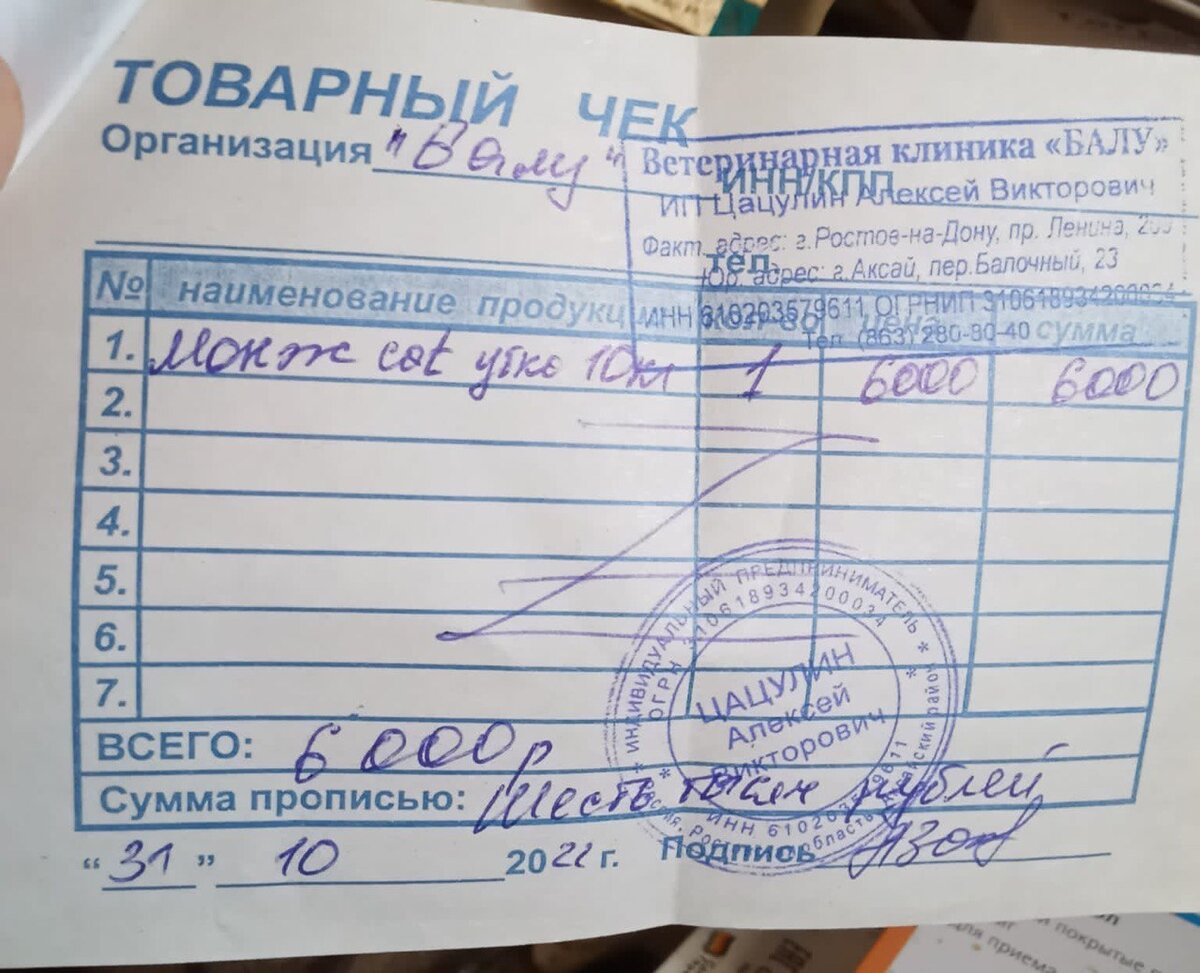 ТОВАРНЫЙ ЧЕК
Организация "Балу"
ИНН/КПП
тел.
Ветеринарная клиника «БАЛУ»
ИП Цацулин Алексей Викторович
Факт. адрес: г.Ростов-на-Дону, пр. Ленина,
Юр. адрес: г.Аксай, пер.Балочный, 23
ИНН ОГРНИП 310618934200034
Тел. (863) 280-80-40
№ наименование продукц кол-во цена сумма
1. Монж cat утка 10кг 1 6000 6000
2.
3.
4.
5.
6.
7.
ВСЕГО: 6000р
Сумма прописью: Шесть тысяч рублей
"31" 10 2021 г. Подпись
ИНДИВИДУАЛЬНЫЙ ПРЕДПРИНИМАТЕЛЬ
ОГРН 310618934200034
ЦАЦУЛИН
Алексей
Викторович
покрытые
для приема